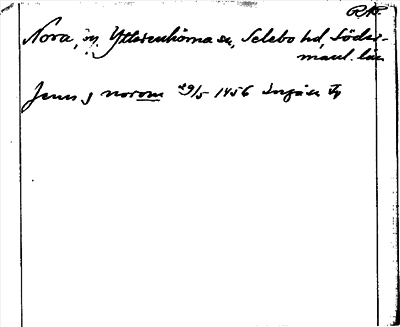 RA.
Nora, Ytterenhörna sn, Selebo hd, Söder-
manl. län
Jenus j norom 29/5 1456